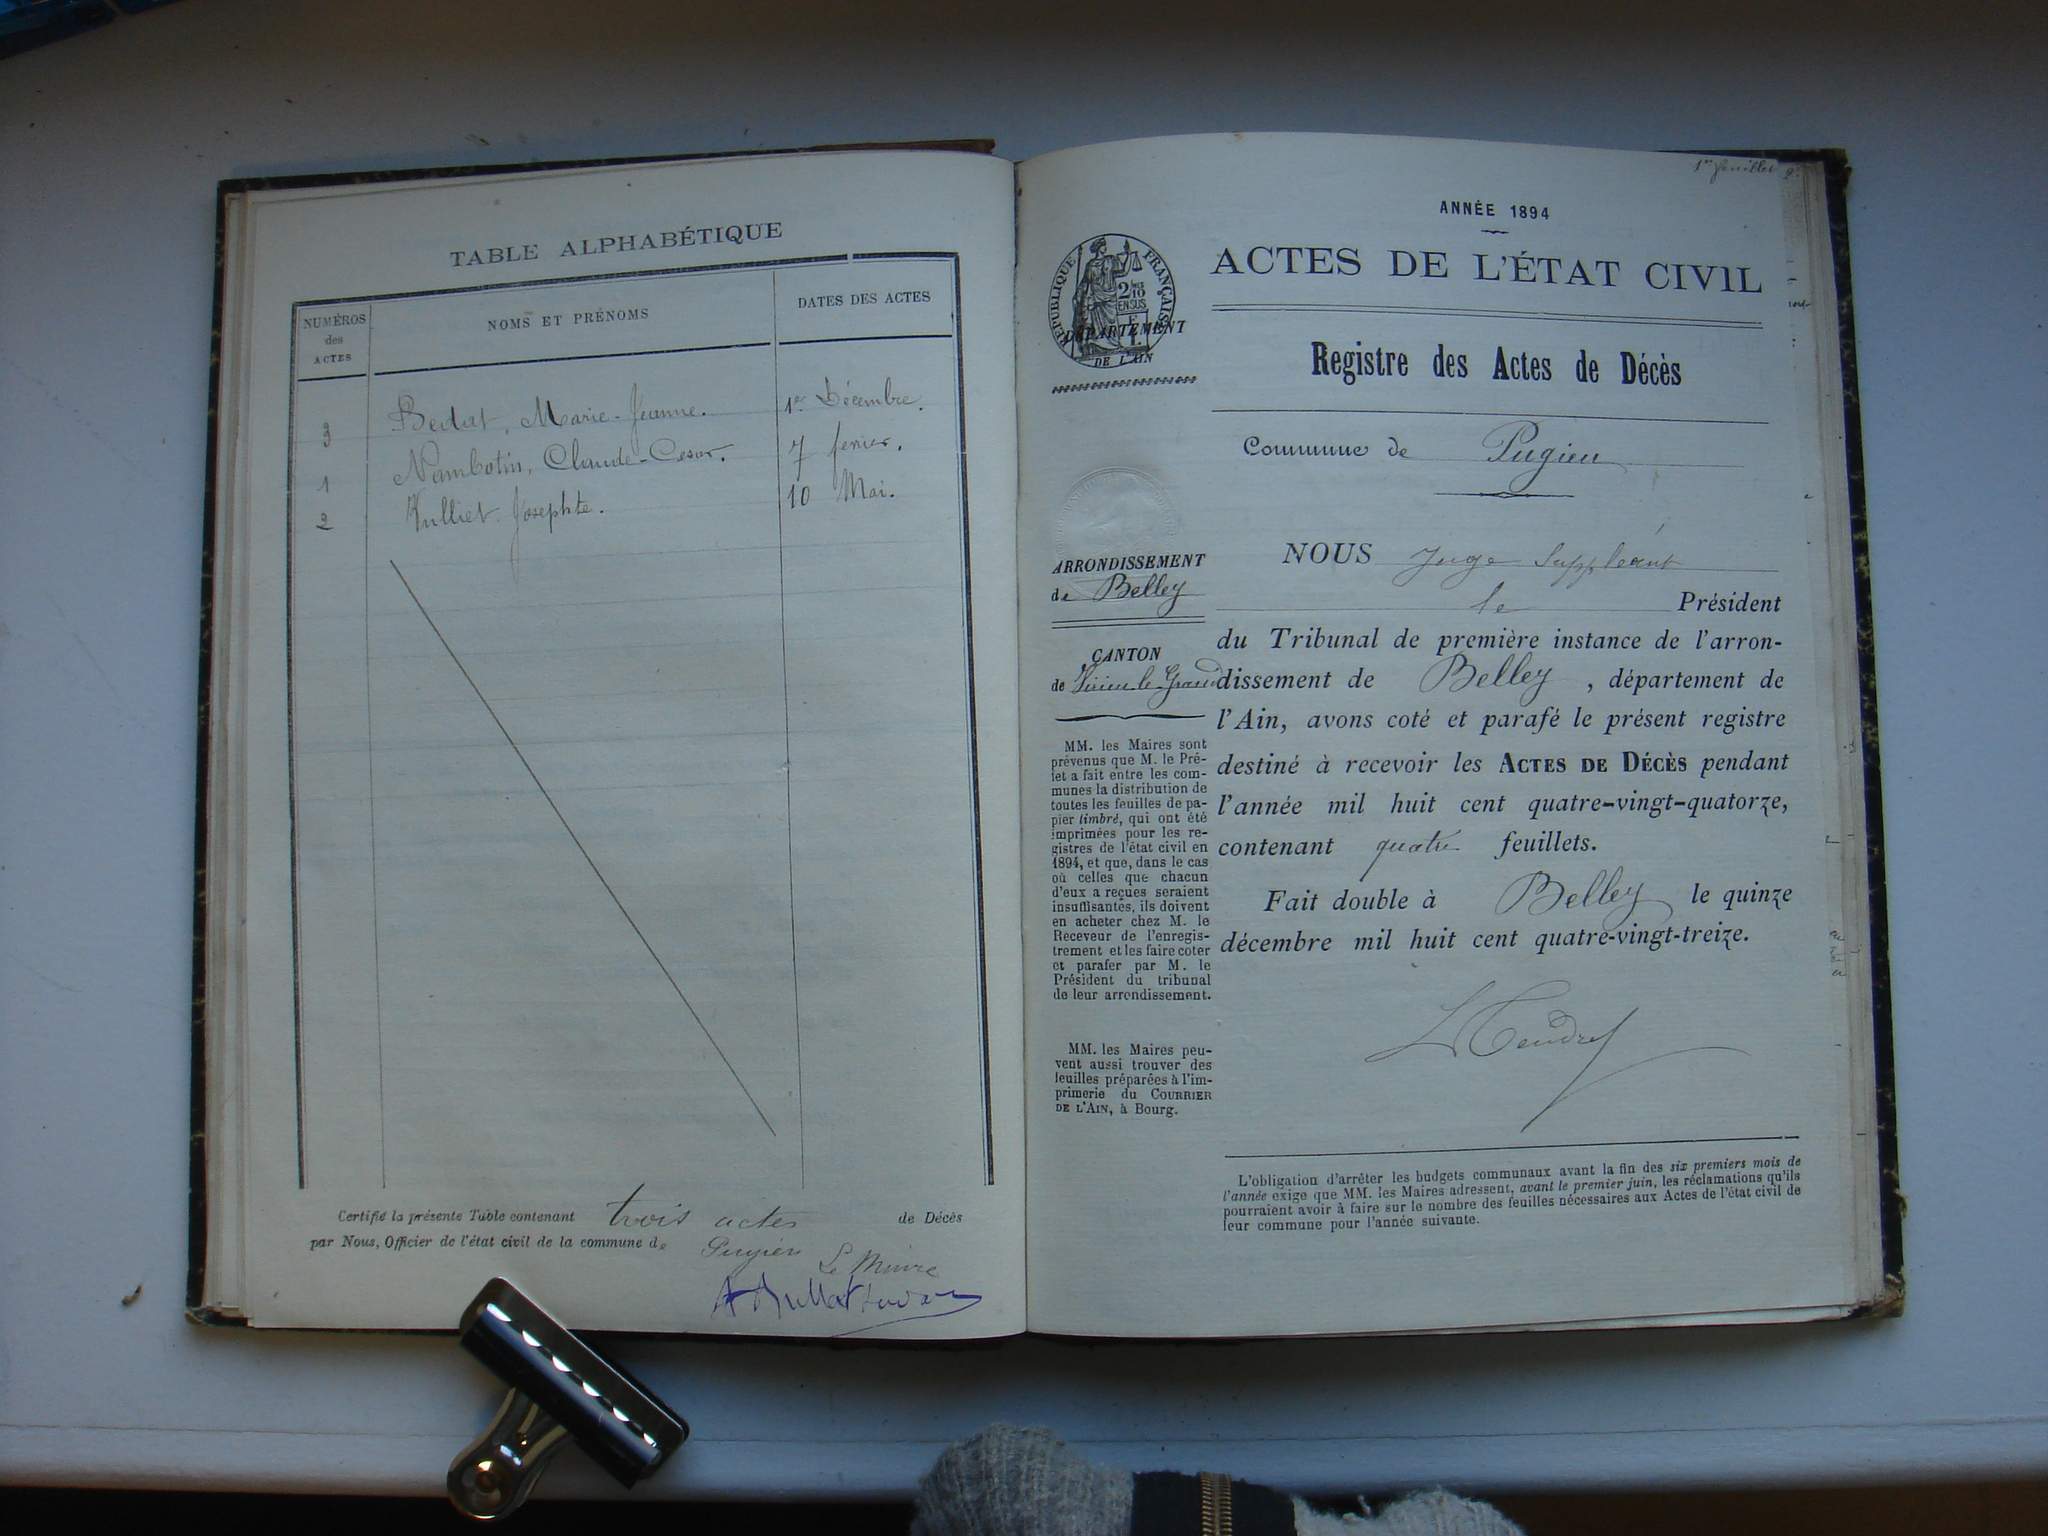 TABLE ALPHABÉTIQUE
NUMÉROS des ACTES
NOMS ET PRÉNOMS
DATES DES ACTES
3 Marie-Jeanne. 1er Décembre.
1 Nambotin, Claude-Cesar. 7 fevrier.
2 Vulliet Josephte. 10 Mai.
Certifié la présente Table contenant trois actes de Décès
par Nous, Officier de l'état civil de la commune de Pugieu
Le Maire
1er feuillet
ANNÉE 1894
ACTES DE L'ÉTAT CIVIL
RÉPUBLIQUE FRANÇAISE
2/10 EN SUS
DÉPARTEMENT
DE L'AIN
Registre des Actes de Décès
Commune de Pugieu
ARRONDISSEMENT
de Belley
CANTON
de Virieu-le-Grand
MM. les Maires sont
prévenus que M. le Pré-
fet a fait entre les com-
munes la distribution de
toutes les feuilles de pa-
pier timbré, qui ont été
imprimées pour les re-
gistres de l'état civil en
1894, et que, dans le cas
où celles que chacun
d'eux a reçues seraient
insuffisantes, ils doivent
en acheter chez M. le
Receveur de l'enregis-
trement et les faire coter
et parafer par M. le
Président du tribunal
de leur arrondissement.
MM. les Maires peu-
vent aussi trouver des
feuilles préparées à l'im-
primerie du COURRIER
DE L'AIN, à Bourg.
NOUS Juge Suppléant
le Président
du Tribunal de première instance de l'arron-
dissement de Belley, département de
l'Ain, avons coté et parafé le présent registre
destiné à recevoir les ACTES DE DÉCÈS pendant
l'année mil huit cent quatre-vingt-quatorze,
contenant quatre feuillets.
Fait double à Belley le quinze
décembre mil huit cent quatre-vingt-treize.
L'obligation d'arrêter les budgets communaux avant la fin des six premiers mois de
l'année exige que MM. les Maires adressent, avant le premier juin, les réclamations qu'ils
pourraient avoir à faire sur le nombre des feuilles nécessaires aux Actes de l'état civil de
leur commune pour l'année suivante.